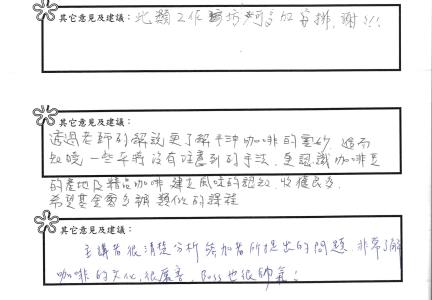 其它意見及建議：此類工作坊可多加安排，謝!!!
其它意見及建議：
透過老師的解說更了解手沖咖啡的重妙，進而
知曉一些平時沒有注意到的手法，更認識咖啡豆
的產地及精品咖啡，建立風味的認知，收獲良多，
希望基金會多辦類似的課程
其它意見及建議：
主講者很清楚分析參加者所提出的問題，非常了解
咖啡的文化，很厲害，Boss也很帥氣！